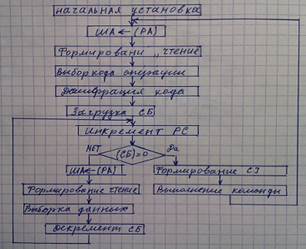 начальная установка
ША ← (РА)
Формировани „ чтение
Выбор кода операции
Дешифрация кода
Загрузка СБ
Инкремент РС
НЕТ
(СБ)=0
Да
ША ← (РА)
Формирование СЗ
Формирование чтение
Выполнение команды
Выборка данных
Декремент СБ